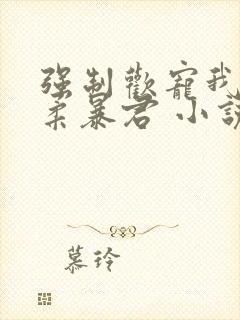 强制歡寵我
柔暴君 小說
慕玲